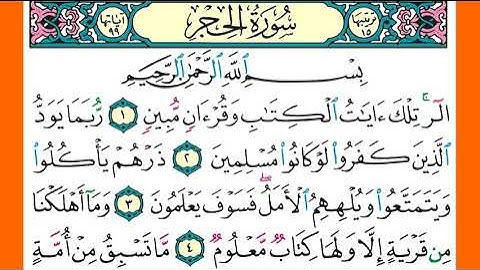 ترتيبها ١٥ سُورَةُ الحِجر آياتها ٩٩
بِسْمِ ٱللَّهِ ٱلرَّحْمَٰنِ ٱلرَّحِيمِ
الٓرۚ تِلْكَ ءَايَٰتُ ٱلْكِتَٰبِ وَقُرْءَانٍ مُّبِينٍ ١ رُّبَمَا يَوَدُّ
ٱلَّذِينَ كَفَرُوا۟ لَوْ كَانُوا۟ مُسْلِمِينَ ٢ ذَرْهُمْ يَأْكُلُوا۟
وَيَتَمَتَّعُوا۟ وَيُلْهِهِمُ ٱلْأَمَلُۖ فَسَوْفَ يَعْلَمُونَ ٣ وَمَآ أَهْلَكْنَا
مِن قَرْيَةٍ إِلَّا وَلَهَا كِتَابٌ مَّعْلُومٌ ٤ مَّا تَسْبِقُ مِنْ أُمَّةٍ